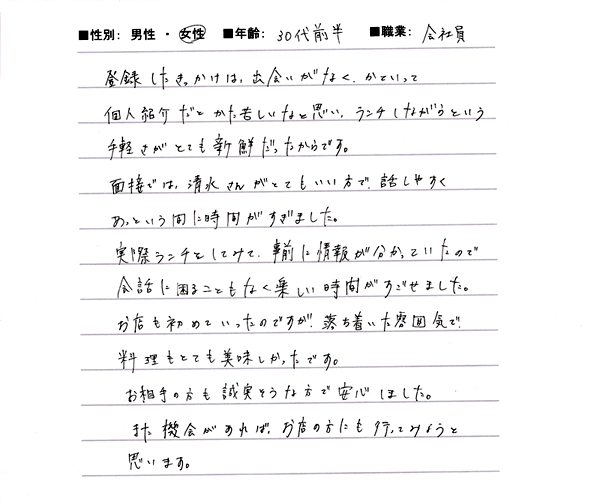 ■性別: 男性 ・ 女性 ■年齢: 30代前半 ■職業: 会社員
登録したきっかけは、出会いがなく、かといって
個人紹介だとかた苦しいなと思い、ランチしながらという
手軽さがとても新鮮だったからです。
面接では、清水さんがとてもいい方で、話しやすく
あっという間に時間がすぎました。
実際ランチをしてみて、事前に情報が分かっていたので
会話に困ることもなく楽しい時間がすごせました。
お店も初めていったのですが、落ち着いた雰囲気で、
料理もとても美味しかったです。
お相手の方も誠実そうな方で安心しました。
また機会があれば、お店の方にも行ってみようと
思います。